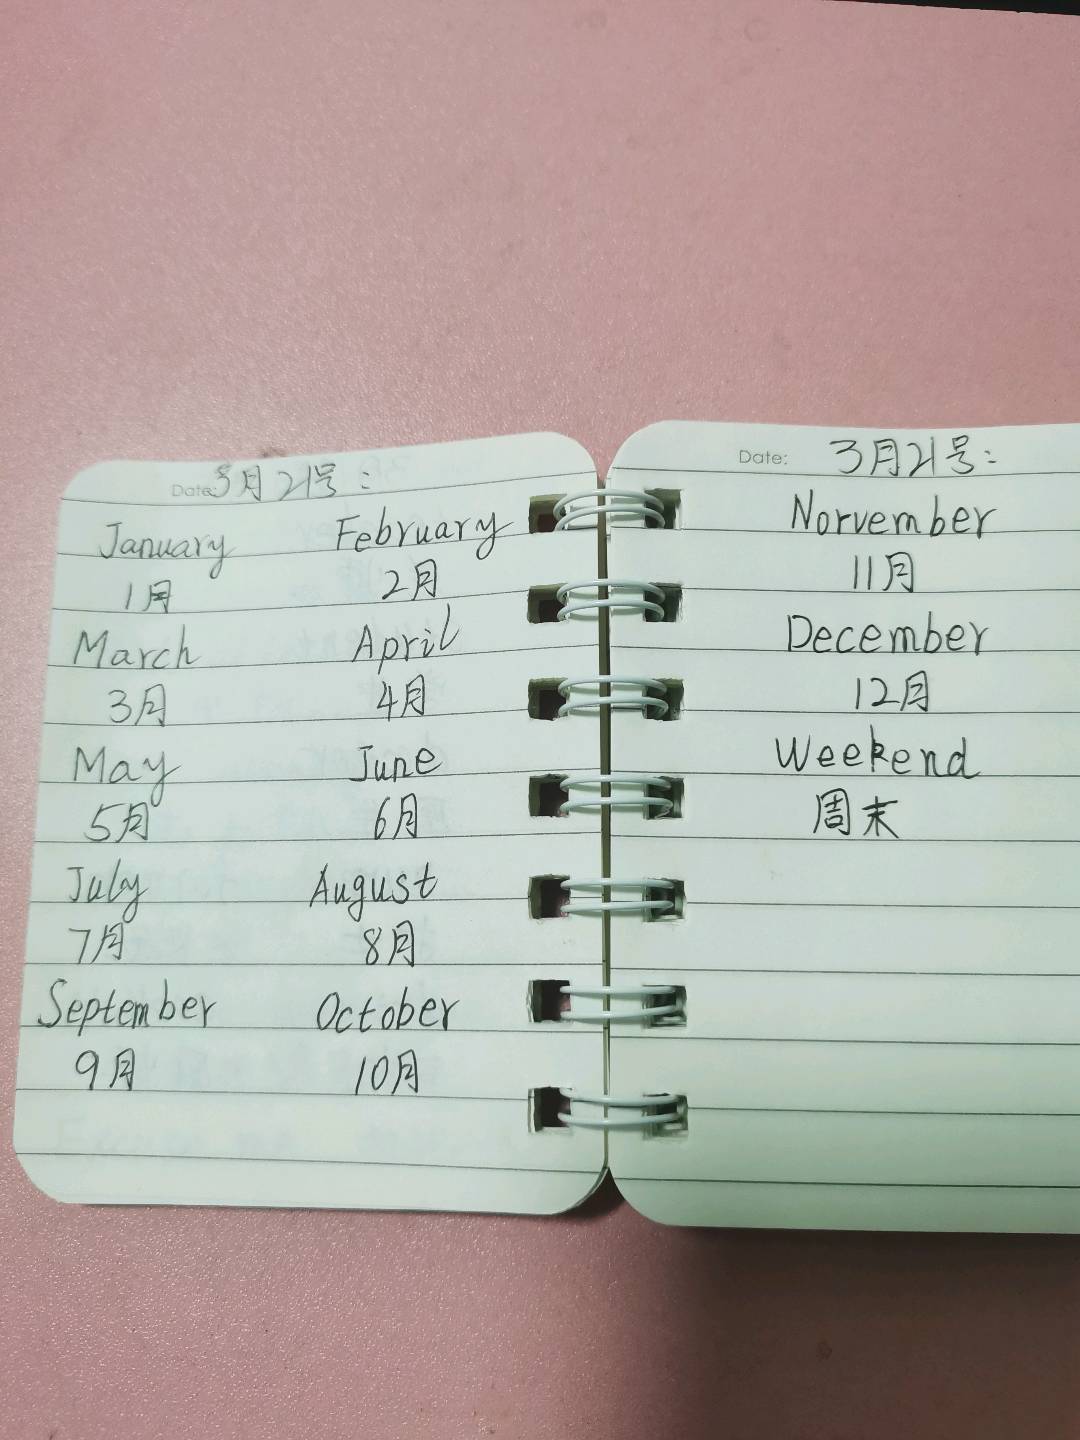 Date: 3月21号:
January February
1月 2月
March April
3月 4月
May June
5月 6月
July August
7月 8月
September October
9月 10月
Date: 3月21号:
Norvember
11月
December
12月
Weekend
周末